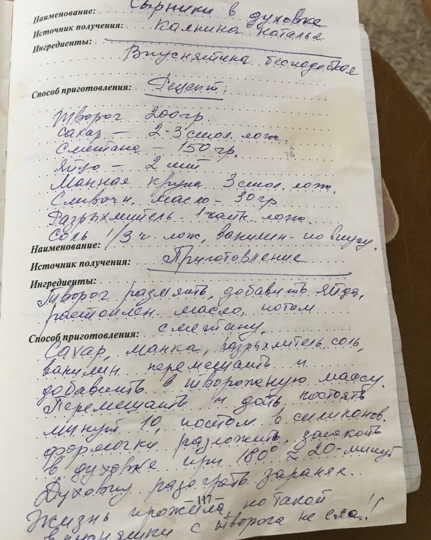 Наименование: Сырники в духовке
Источник получения: Калинина Наталья
Ингредиенты:
Вкуснятина бесподобная
Способ приготовления: Рецепт:
Творог 200гр.
Сахар – 2-3 стол. лож.
Сметана – 150гр.
Яйцо – 2 шт
Манная крупа 3 стол. лож.
Сливочн. масло – 30гр.
Разрыхлитель 1 чайн. лож.
Соль 1/3 ч. лож, ванилин – по вкусу.
Наименование:
Источник получения: Приготовление
Ингредиенты:
Творог размять, добавить яйца,
растоплен. масло, потом
Способ приготовления: сметану,
Сахар, манка, разрыхлитель, соль,
ванилин перемешать и
добавить в творожную массу.
Перемешать и дать постоять
минут 10, потом в силиконов.
формочки разложить, запекать
в духовке при 180° ≈ 20-минут
Духовку разогреть заранее
– 117 –
Жизнь прожила, но такой
вкуснятины с творога не ела!!